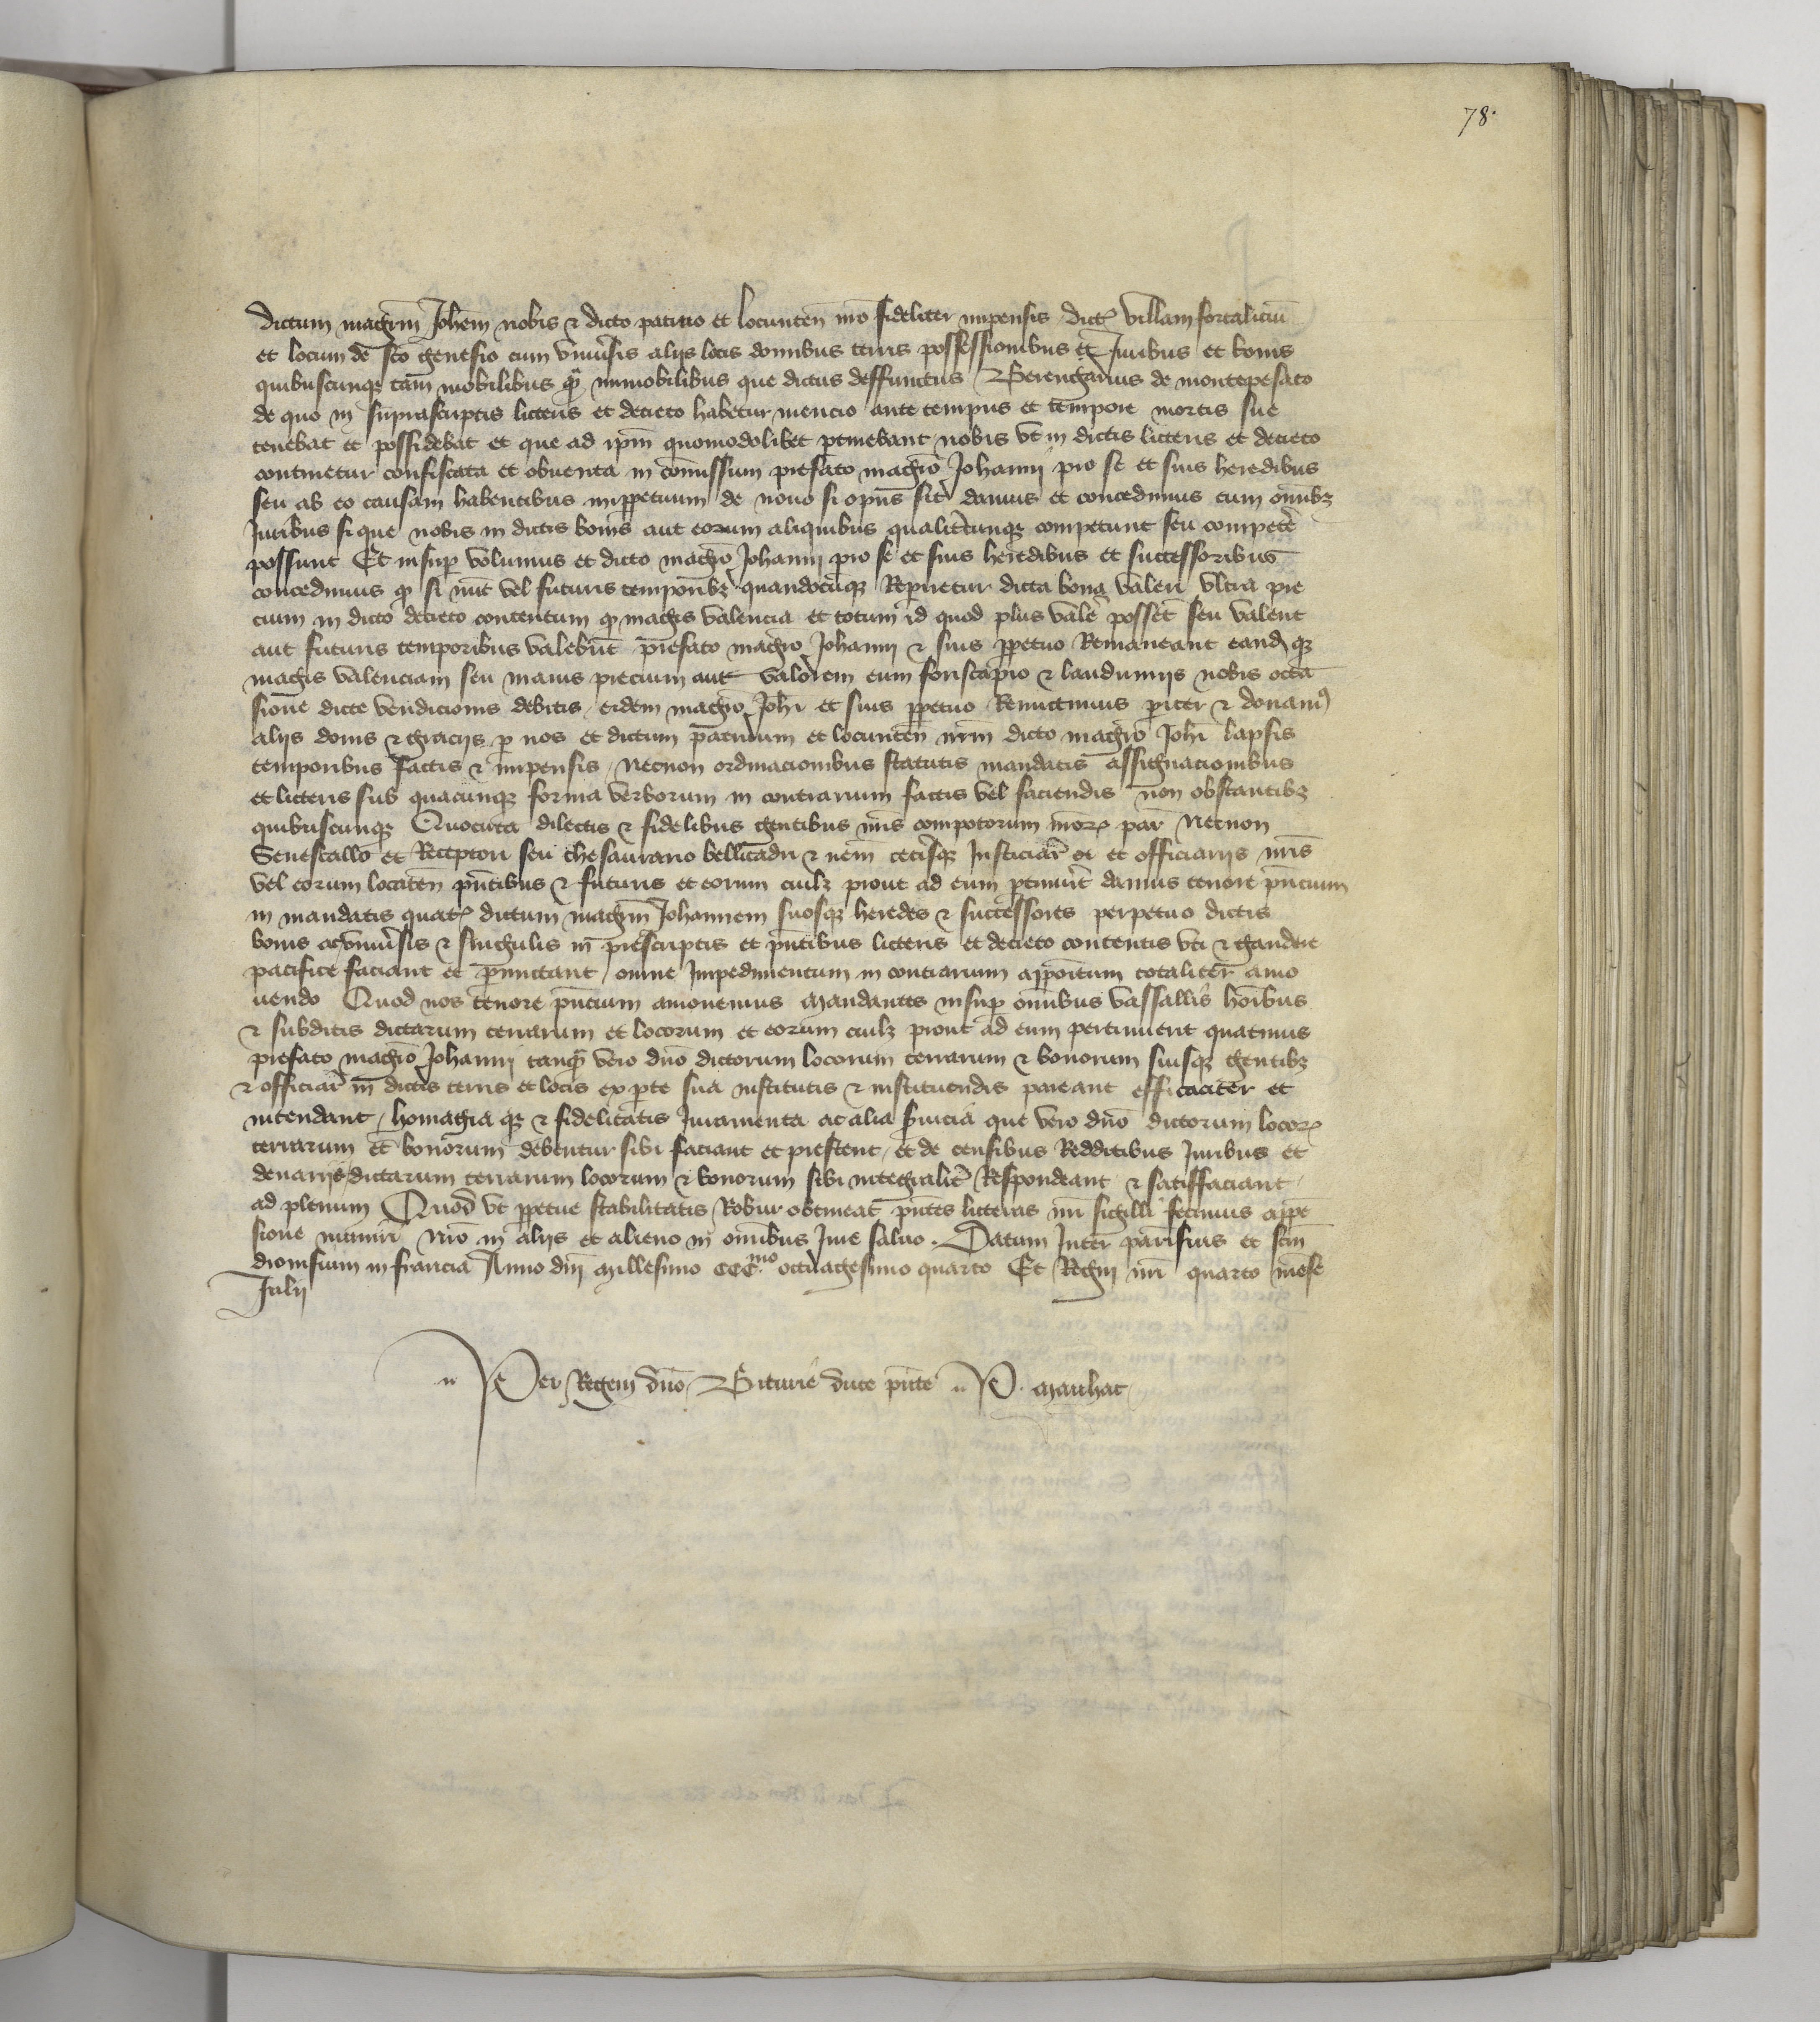 78.
dictum magrm̄ Joħem nobis ⁊ dicto patruo et locumten̄ nr̄o fideliter impensis dict villam fortaliciū
et locum de sc̄o Genesio cum vniu̾sis alijs locis domibus terris possessionibus et Juribus et bonis
quibuscunqȝ tam mobilibus q̄ inmobilibus que dictus deffunctus Berengarius de montepesato
de quo in suprascriptis litteris et decreto habetur mencio ante tempus et tempore mortis sue
tenebat et possidebat et que ad ip̄m quomodolibet ptinebant nobis vt in dictis litteris et decreto
continetur confiscata et obuenta in com̄issum prefato magrō Johanni pro se et suis heredibus
seu ab eo causam habentibus inppetuum de nouo si opus sit damus et concedimus cum om̄ibȝ
Juribus si que nobis in dictis bonis aut eorum aliquibus qualitercunqȝ competunt seu compete̾
possunt Et insup volumus et dicto magrō Johanni pro se et suis heredibus et successoribus
concedimus q si nūc vel futuris temporibȝ quandocūqȝ Reperietur dicta bona valeri vltra pre
cium in dicto decreto contentum q magis valencia et totum id quod plus vale̾ possēt seu valent
aut futuris temporibus valebūt prefato magrō Johanni ⁊ suis ppetuo Remaneant eandqȝ
magis valenciam seu maius precium aut valorem cum foriscapio ⁊ laudimijs nobis occa
sione dicte vendicionis debitis eidem magrō Joħi et suis ppetuo Remittimus pariter ⁊ donam⁹
alijs donis ⁊ gracijs p nos et dictum patruum et locumten̄ nr̄m dicto magrō Joħi lapsis
temporibus factis ⁊ impensis necnon ordinacionibus statutis mandatis assignacionibus
et litteris sub quacunqȝ forma verborum in contrarium factis vel faciendis non obstantibȝ
quibuscunqȝ Quocirca dilectis ⁊ fidelibus gentibus nr̄is compotorum nr̄orꝝ par̄ Necnon
Senescallo et Receptori seu thesaurario bellicadri ⁊ nem̄ ceterisqȝ Justiciar et officiarijs nr̄is
vel eorum locaten̄ pn̄tibus ⁊ futuris et eorum cuilȝ prout ad eum ptinu̾it damus tenore pn̄cium
in mandatis quatꝰ dictum magrm̄ Johannem suosqȝ heredes ⁊ successores perpetuo dictis
bonis ac vniu̾sis ⁊ singulis in prescriptis et pn̄tibus litteris et decreto contentis vti ⁊ gaudere
pacifice faciant et pmittant omne Impedimentum in contrarium appoitum totaliter amo
uendo Quod nos tenore pn̄cium amouemus Mandantes insup om̄ibus vassallis hoībus
⁊ subditis dictarum terrarum et locorum et eorum cuilȝ prout ad eum pertinuerit quatinus
prefato magrō Johanni tanq̄ vero dn̄o dictorum locorum terrarum ⁊ bonorum suisqȝ gentibȝ
⁊ officiar̄ in dictis terris et locis ex pte sua institutis ⁊ instituendis pareant efficaciter et
intendant homagia qȝ ⁊ fidelitatis Juramenta ac alia s̾uicia que vero dn̄o dictorum locorꝝ
terrarum et bonorum debentur sibi faciant et prestent et de censibus Redditibus Juribus et
denarijs dictarum terrarum locorum ⁊ bonorum sibi integralit̾ Respondeant ⁊ satisfaciant
ad plenum Quod vt ppetue stabilitatis Robur obtineat pn̄tes litteras nr̄i sigilli fecimus appen
sione muniri nr̄o in alijs et alieno in om̄ibus Jure saluo. Datum Inter parisius et sc̄m
dionisium in francia Anno dn̄i Millesimo CCC.mo octuagesimo quarto Et Regni nr̄i quarto mense
Julij
Per Regem dn̄o Biturie duce pn̄te P. Mauhac